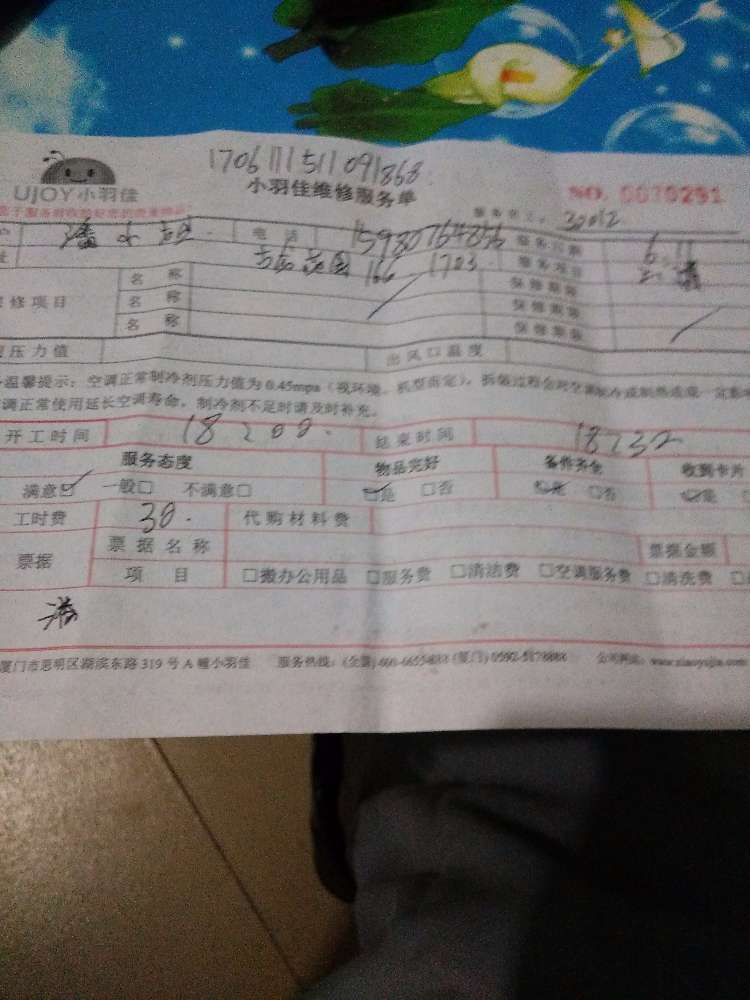 1706111511091868
UJOY小羽佳
小羽佳维修服务单
NO. 0070291
30012
潘 电话 15980764856 服务日期 6.11
166 1703 服务项目
修项目 名称 保修期限
名称 保修期限
名称 保修期限
压力值 出风口温度
温馨提示：空调正常制冷剂压力值为0.45mpa（视环境、机型而定），拆装过程会对空调制冷或制热造成一定影
调正常使用延长空调寿命，制冷剂不足时请及时补充。
开工时间 18:00 结束时间 18:32
服务态度 物品完好 备件齐全 收到卡片
满意☑ 一般□ 不满意□ ☑是 □否 ☑是 □否 ☑是
工时费 30. 代购材料费
票据 票据名称 票据金额
项目 □搬办公用品 □服务费 □清洁费 □空调服务费 □清洗费
潘
厦门市思明区湖滨东路319号A幢小羽佳 服务热线：(全国) 400-6655-888 (厦门) 0592-5178888 公司网站：www.xiaoyujia.com